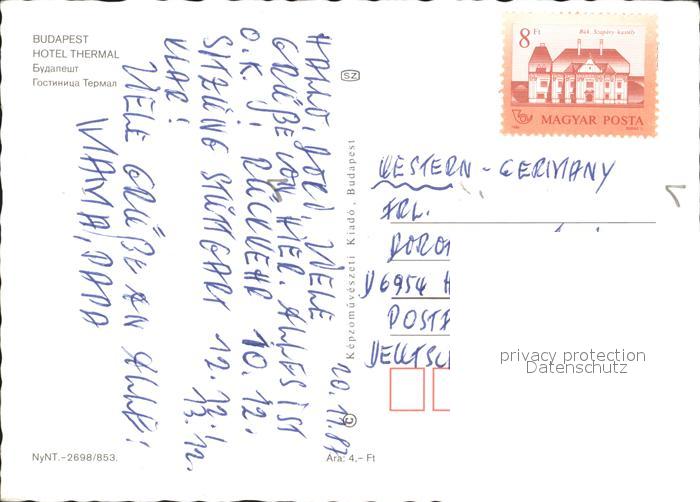 BUDAPEST
HOTEL THERMAL
Будапешт
Гостиница Термал
SZ
8 Ft
Bük, Szapáry-kastély
MAGYAR POSTA
20.11.87
HALLO, DORO, VIELE
GRÜßE VON HIER. ALLES IST
O.K. RÜCKKEHR 10.12.
SITZUNG STUTTGART 12.12./13.12.
KLAR!
VIELE GRÜßE AN ALLE!
MAMA, PAPA
Képzőművészeti Kiadó, Budapest
WESTERN - GERMANY
FRL.
DORO
D 6954 H
POSTA
DEUTSC
privacy protection
Datenschutz
NyNT.-2698/853.
Ára: 4,- Ft